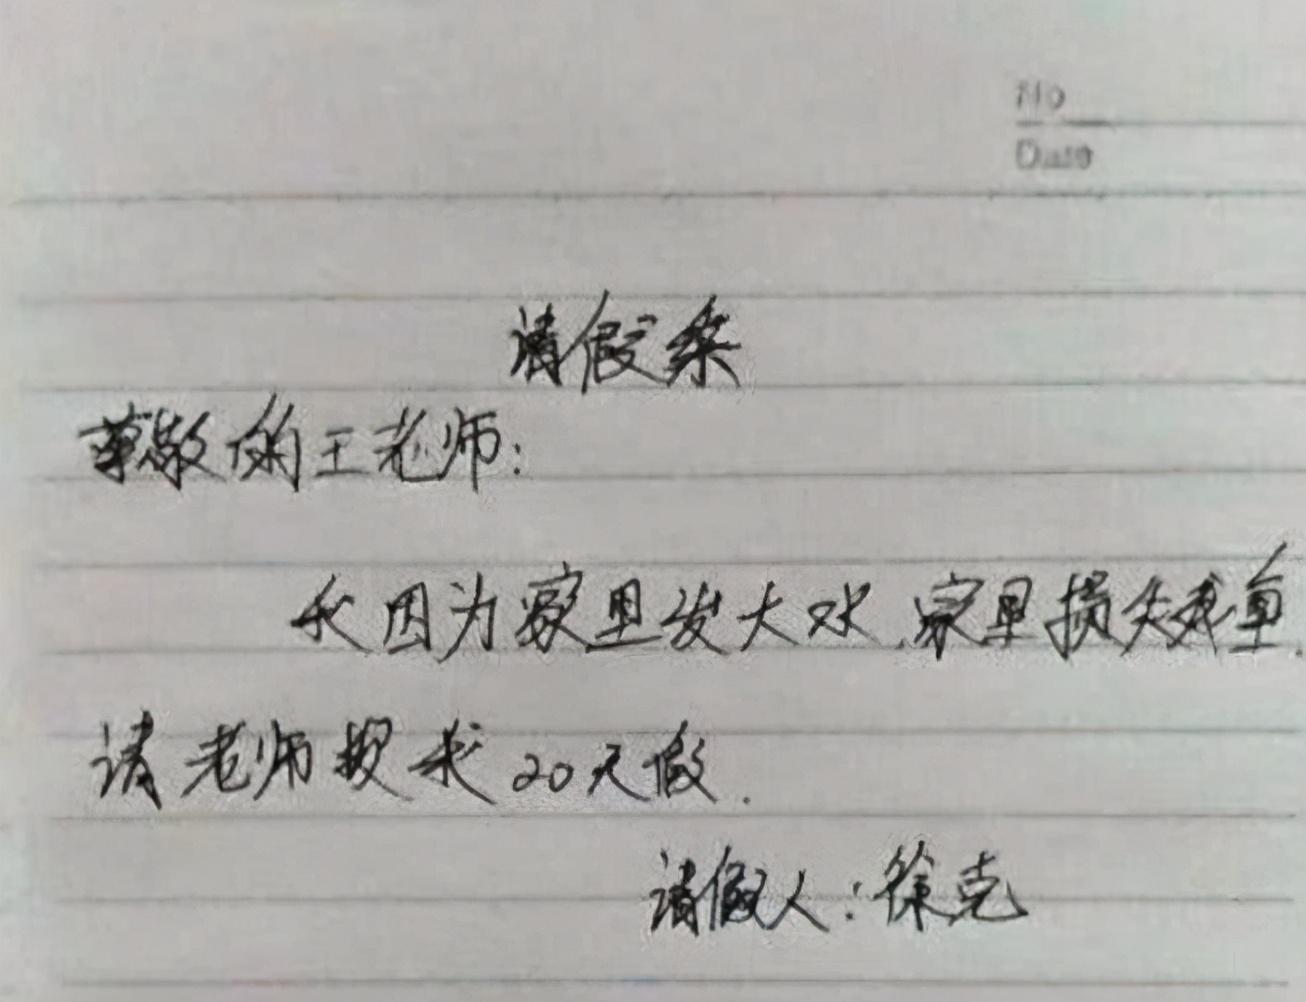 No
Date
请假条
尊敬的王老师:
我因为家里发大水.家里损失残重.
请老师授我20天假.
请假人:徐克